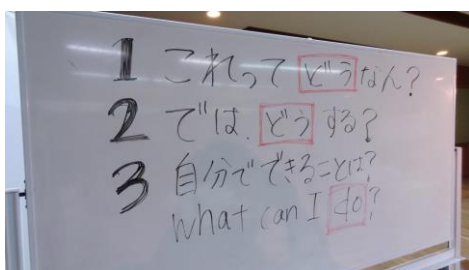 1 これって どうなん?
2 では、どうする?
3 自分でできることは?
what can I do?